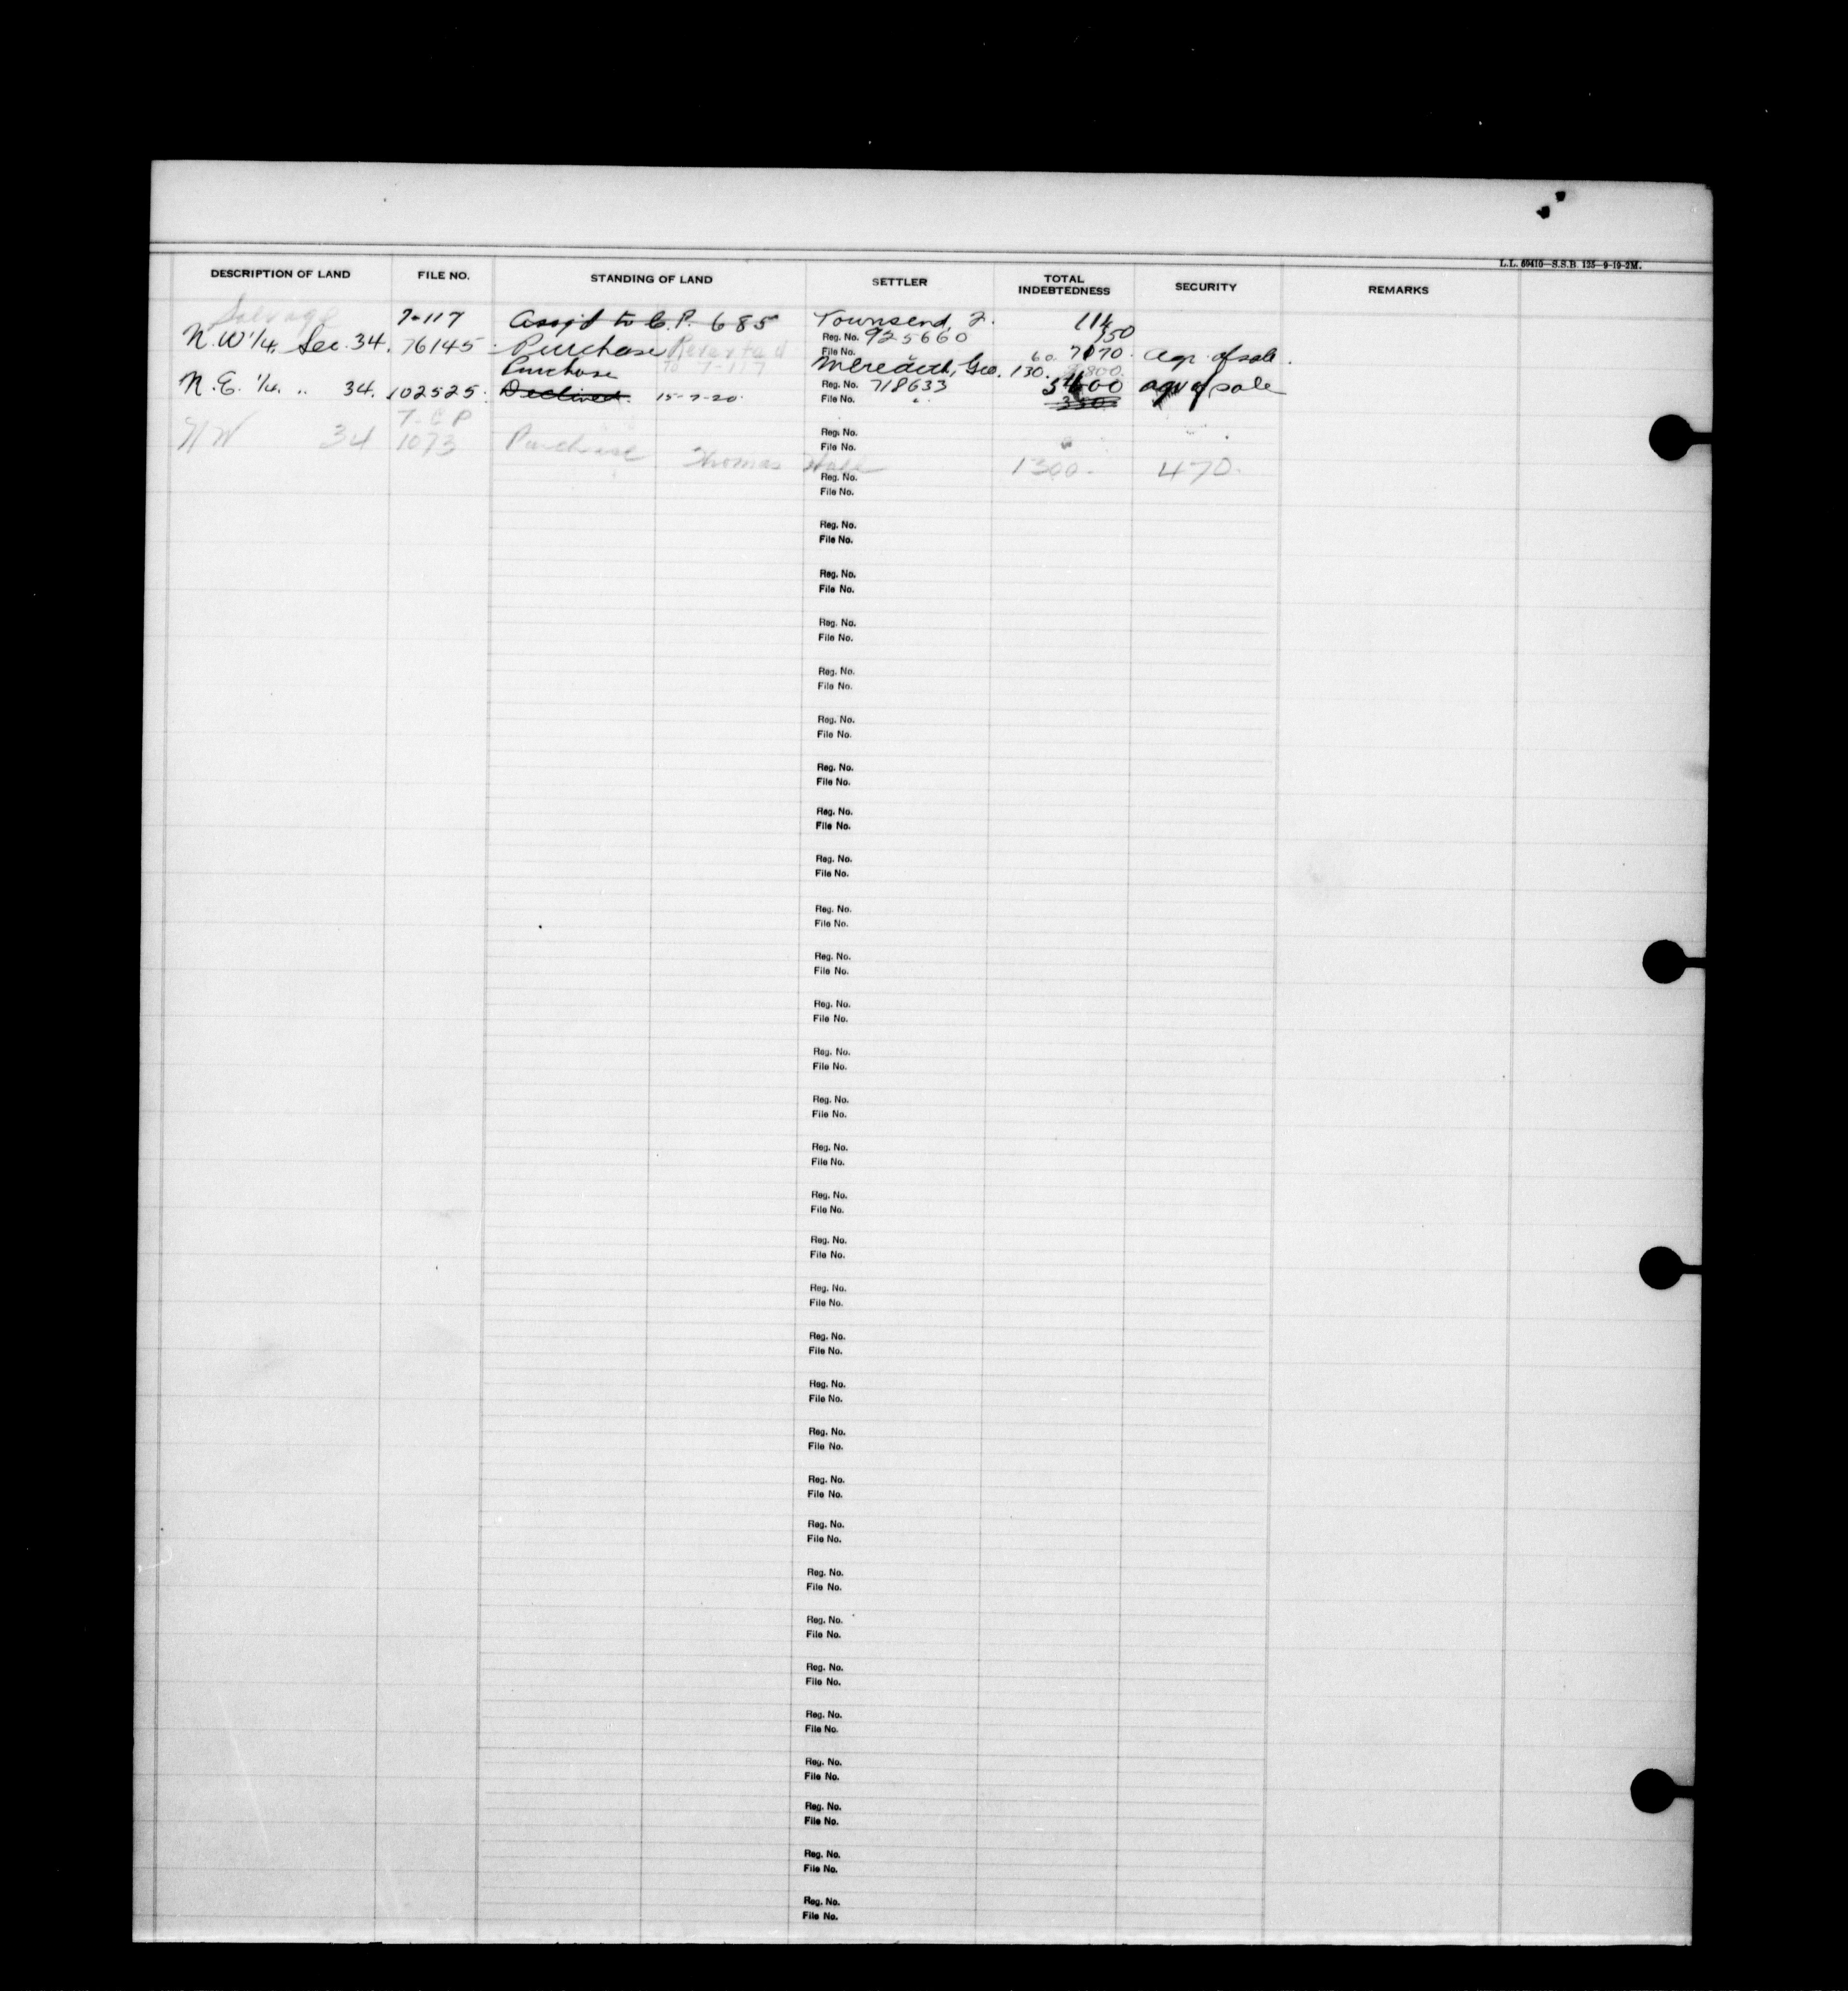 L.L. 69410—S.S.B. 125—9-19-2M.
DESCRIPTION OF LAND FILE NO. STANDING OF LAND SETTLER TOTAL INDEBTEDNESS SECURITY REMARKS
Salvage 7-117 Assg'd to C.P. 685 Townsend, J. 114
N.W 1/4. Sec. 34. 76145. Purchase Reverted Reg. No. 925660 350
to 7-117 File No. 60. 7170. agr. of sale.
Purchase Meredith, Geo. 130. 3,800.
N.E. 1/4. " 34. 102525. Declined. 15-7-20. Reg. No. 718633 5400 agr of sale
File No. " 350
7-C P
NW 34 1073 Purchase Reg. No.
File No.
Thomas Hall 1300. 470.
Reg. No.
File No.
Reg. No.
File No.
Reg. No.
File No.
Reg. No.
File No.
Reg. No.
File No.
Reg. No.
File No.
Reg. No.
File No.
Reg. No.
File No.
Reg. No.
File No.
Reg. No.
File No.
Reg. No.
File No.
Reg. No.
File No.
Reg. No.
File No.
Reg. No.
File No.
Reg. No.
File No.
Reg. No.
File No.
Reg. No.
File No.
Reg. No.
File No.
Reg. No.
File No.
Reg. No.
File No.
Reg. No.
File No.
Reg. No.
File No.
Reg. No.
File No.
Reg. No.
File No.
Reg. No.
File No.
Reg. No.
File No.
Reg. No.
File No.
Reg. No.
File No.
Reg. No.
File No.
Reg. No.
File No.
Reg. No.
File No.